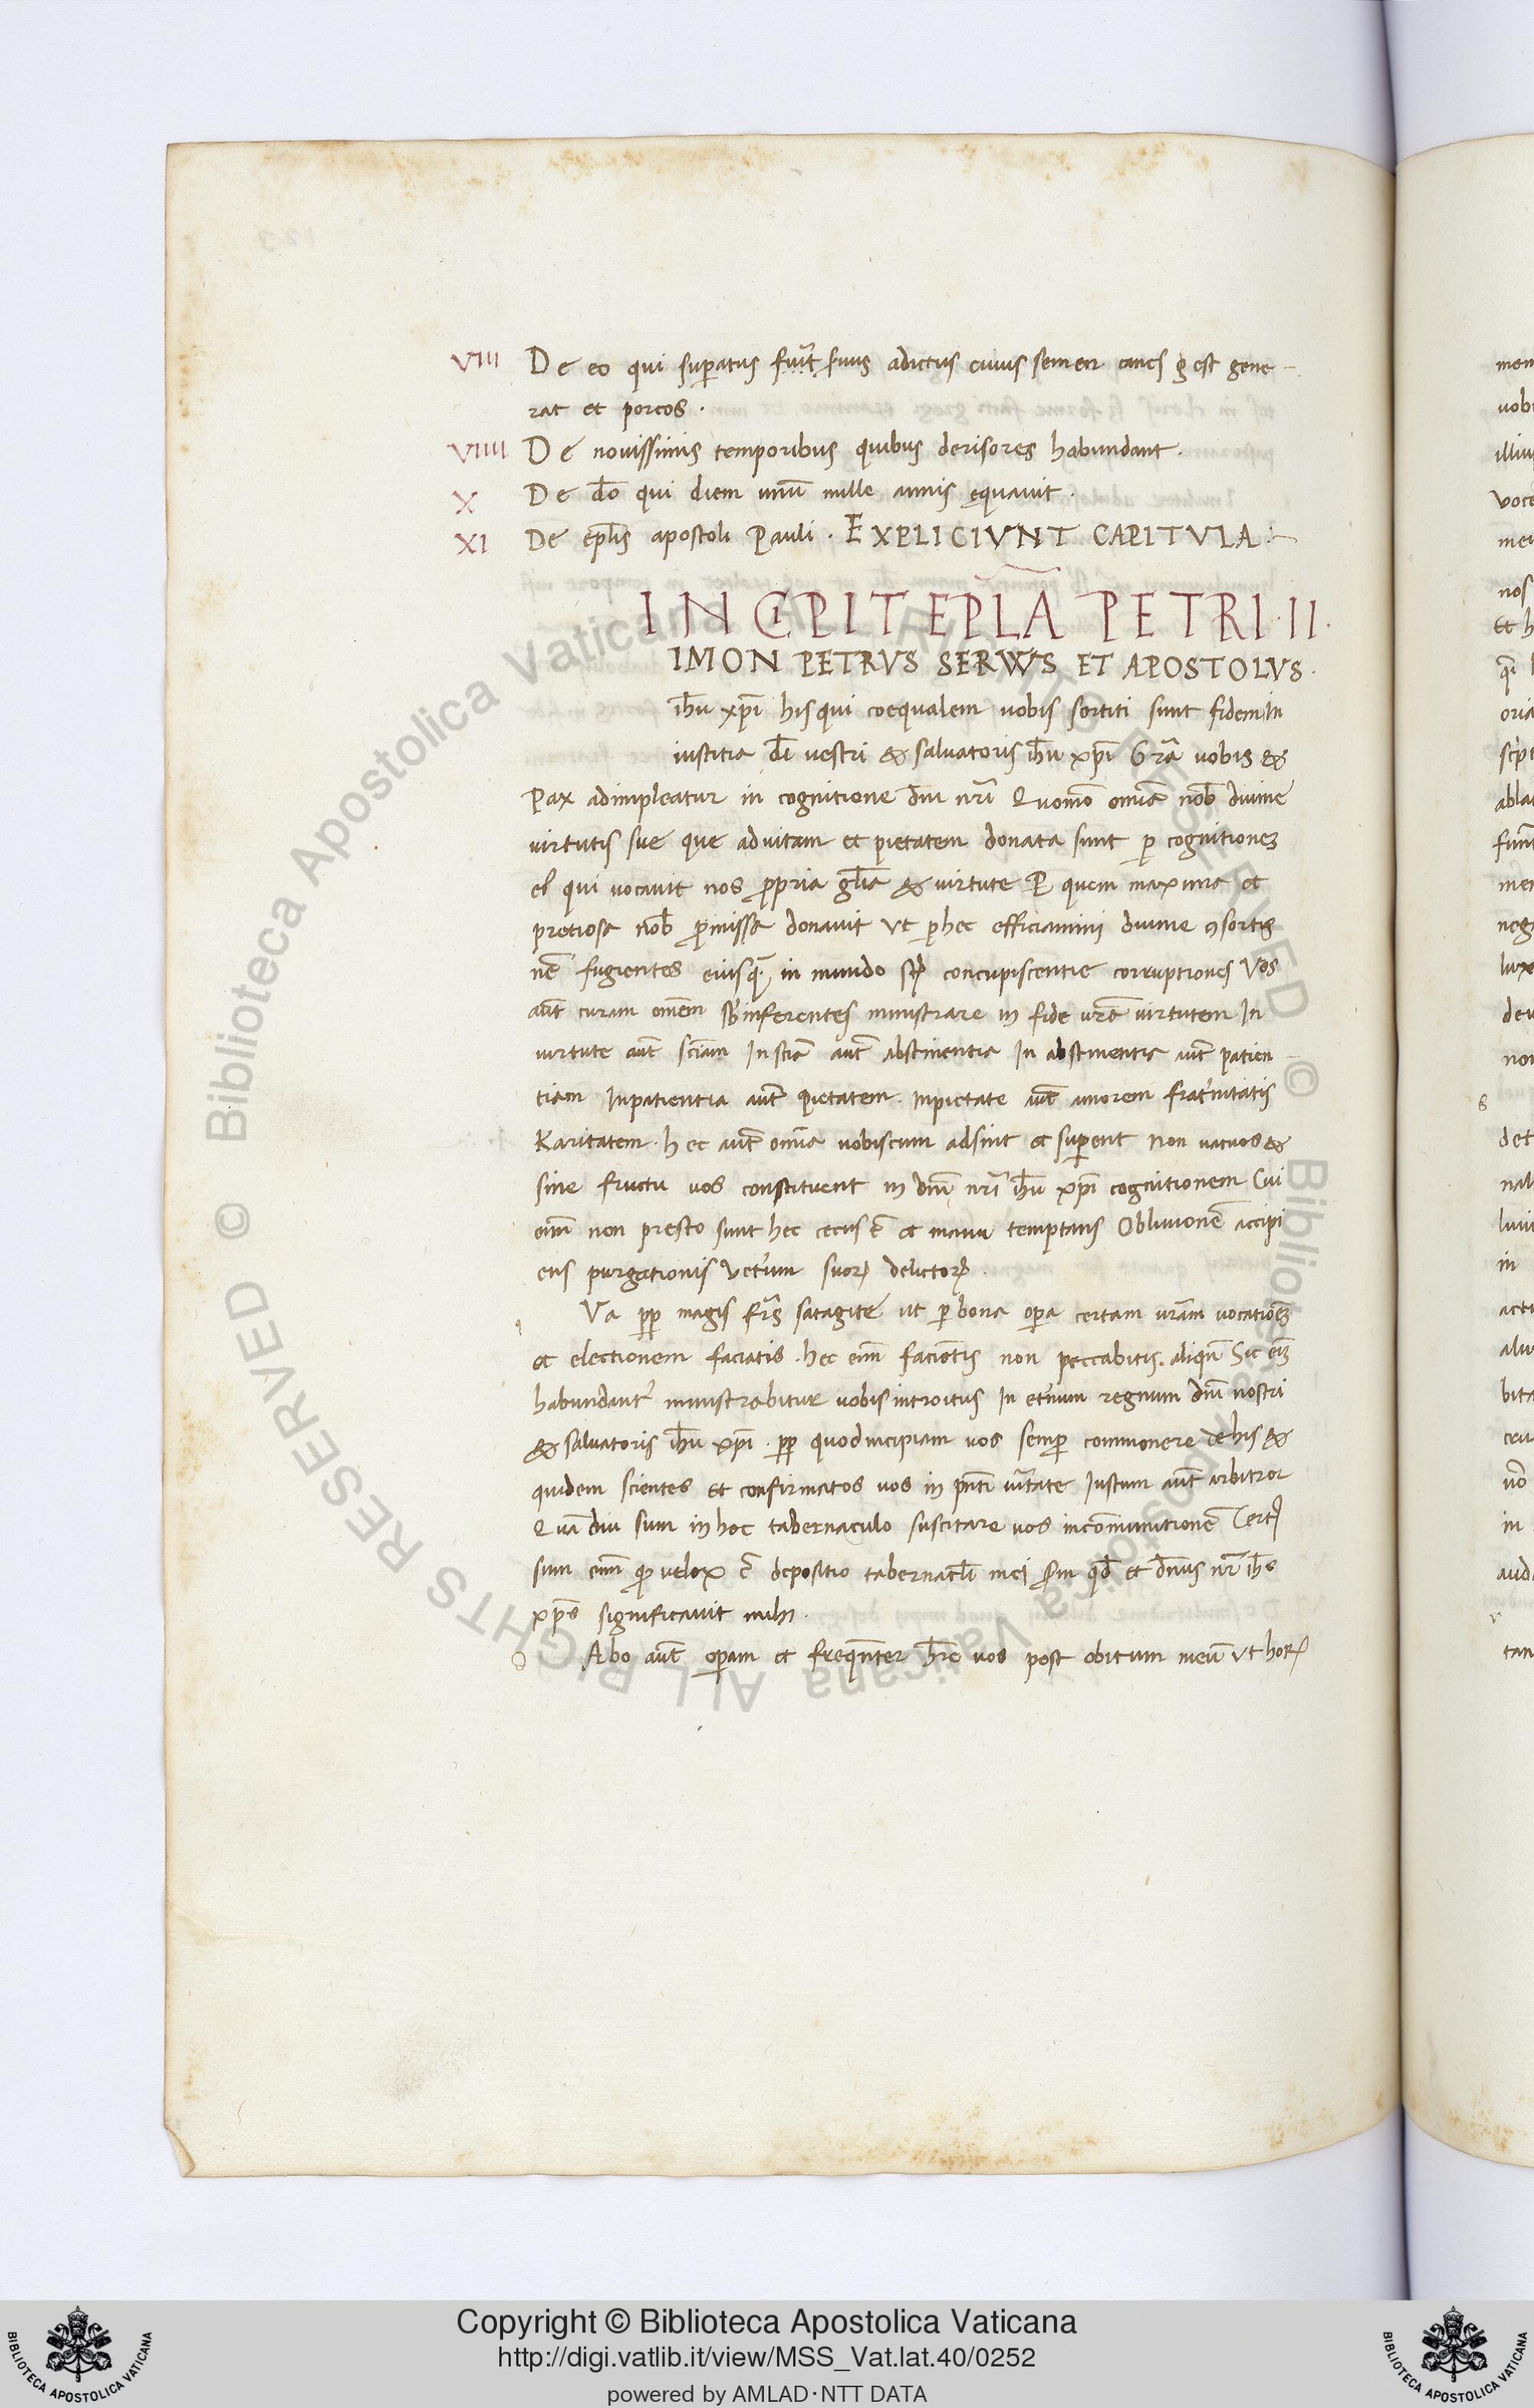 VIII De eo qui suꝑatus fuit suus adictus cuius semen canes ḡ est gene-
rat et porcos.
VIIII De nouissimis temporibus quibus derisores habundant.
X De do̅ qui diem unu̅ mille annis ęquauit.
XI De ep̅lis apostoli Pauli. EXPLICIVNT CAPITVLA:-
INCIPIT EPL̅A PETRI·II·
IMON PETRVS SERVVS ET APOSTOLVS·
ih̅u xp̅i his qui coequalem uobis sortiti sunt fidem In
iustitia di̅ uestri & saluatoris ih̅u xp̅i Gra̅ uobis &
Pax adimpleatur in cognitione dn̅i nr̅i Quomo̅ omia̅ nob̅ diuine
virtutis sue que ad uitam et pietatem donata sunt ꝑ cognitionez
ei qui vocauit nos ꝓpria gl̅ia & virtute P̲ quem maxima et
pretiosa nob̅ ꝓmissa donauit Vt ꝑ hec efficiamini diuine ꝯsortis
ne̅ fugientes eiusq̅ in mundo concupiscentie corruptiones Vos
aut̅ curam omē̅m sb̅inferentes ministrare in fide ur̅a uirtutem In
uirtute aut̅ sci̅am In sci̅a aut̅ abstinentia In abstinentia aut̅ patien-
tiam In patientia aut̅ pietatem. In pietate aut̅ amorem frat̓nitatis
Karitatem. hec aut̅ omia̅ uobiscum adsint et suꝑent Non vacuos &
sine fructu uos constituent in dn̅i nr̅i ih̅u xp̅i cognitionem Cui
eni̅m non presto sunt hec cecus e̅ et manu temptans Obliuione̅ accipi
ens purgationis Vet̓um suoꝝ delictoꝝ.
Va ꝓp magis fr̅s satagite ut ꝑ bona oꝑa certam ur̅am uocationez
et electionem faciatis. hec eni̅m facientis non peccabitis. aliqn̅ Sic eni̅
habundant̓ ministrabitur uobis introitus In et̓num regnum dn̅i nostri
& saluatoris ih̅u xp̅i. ꝓp quod incipiam uos semꝑ commonere de his &
quidem scientes et confirmatos uos in pn̅ti ur̅itate Iustum aut̅ arbitror
Quā diu sum in hoc tabernaculo suscitare uos in co̅munitione̅ Cert9
sum eni̅m ꝙ velox e̅ depositio tabernacl̅i mei qd̅ et dn̅us nr̅ ih̅s
xp̅s significauit mihi.
Abo aut̅ oꝑam et freqn̅ter hr̅e uos post obitum meu̅ Vt hoꝝ
Copyright © Biblioteca Apostolica Vaticana
http://digi.vatlib.it/view/MSS_Vat.lat.40/0252
powered by AMLAD·NTT DATA